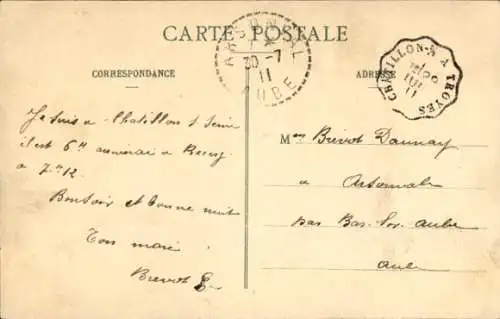 CARTE POSTALE
CORRESPONDANCE
ADRESSE
ARSONVAL
30 -7
11
AUBE
CHATILLON-S- A TROYES
11
Je suis a Chatillon s Seine
il est 6h arriverai a
a 7h 12
Bonsoir et bonne nuit
Ton mari
Brevot E
Mme Brevot Daunay
a Arsonvale
par Bar Sur Aube
Aube